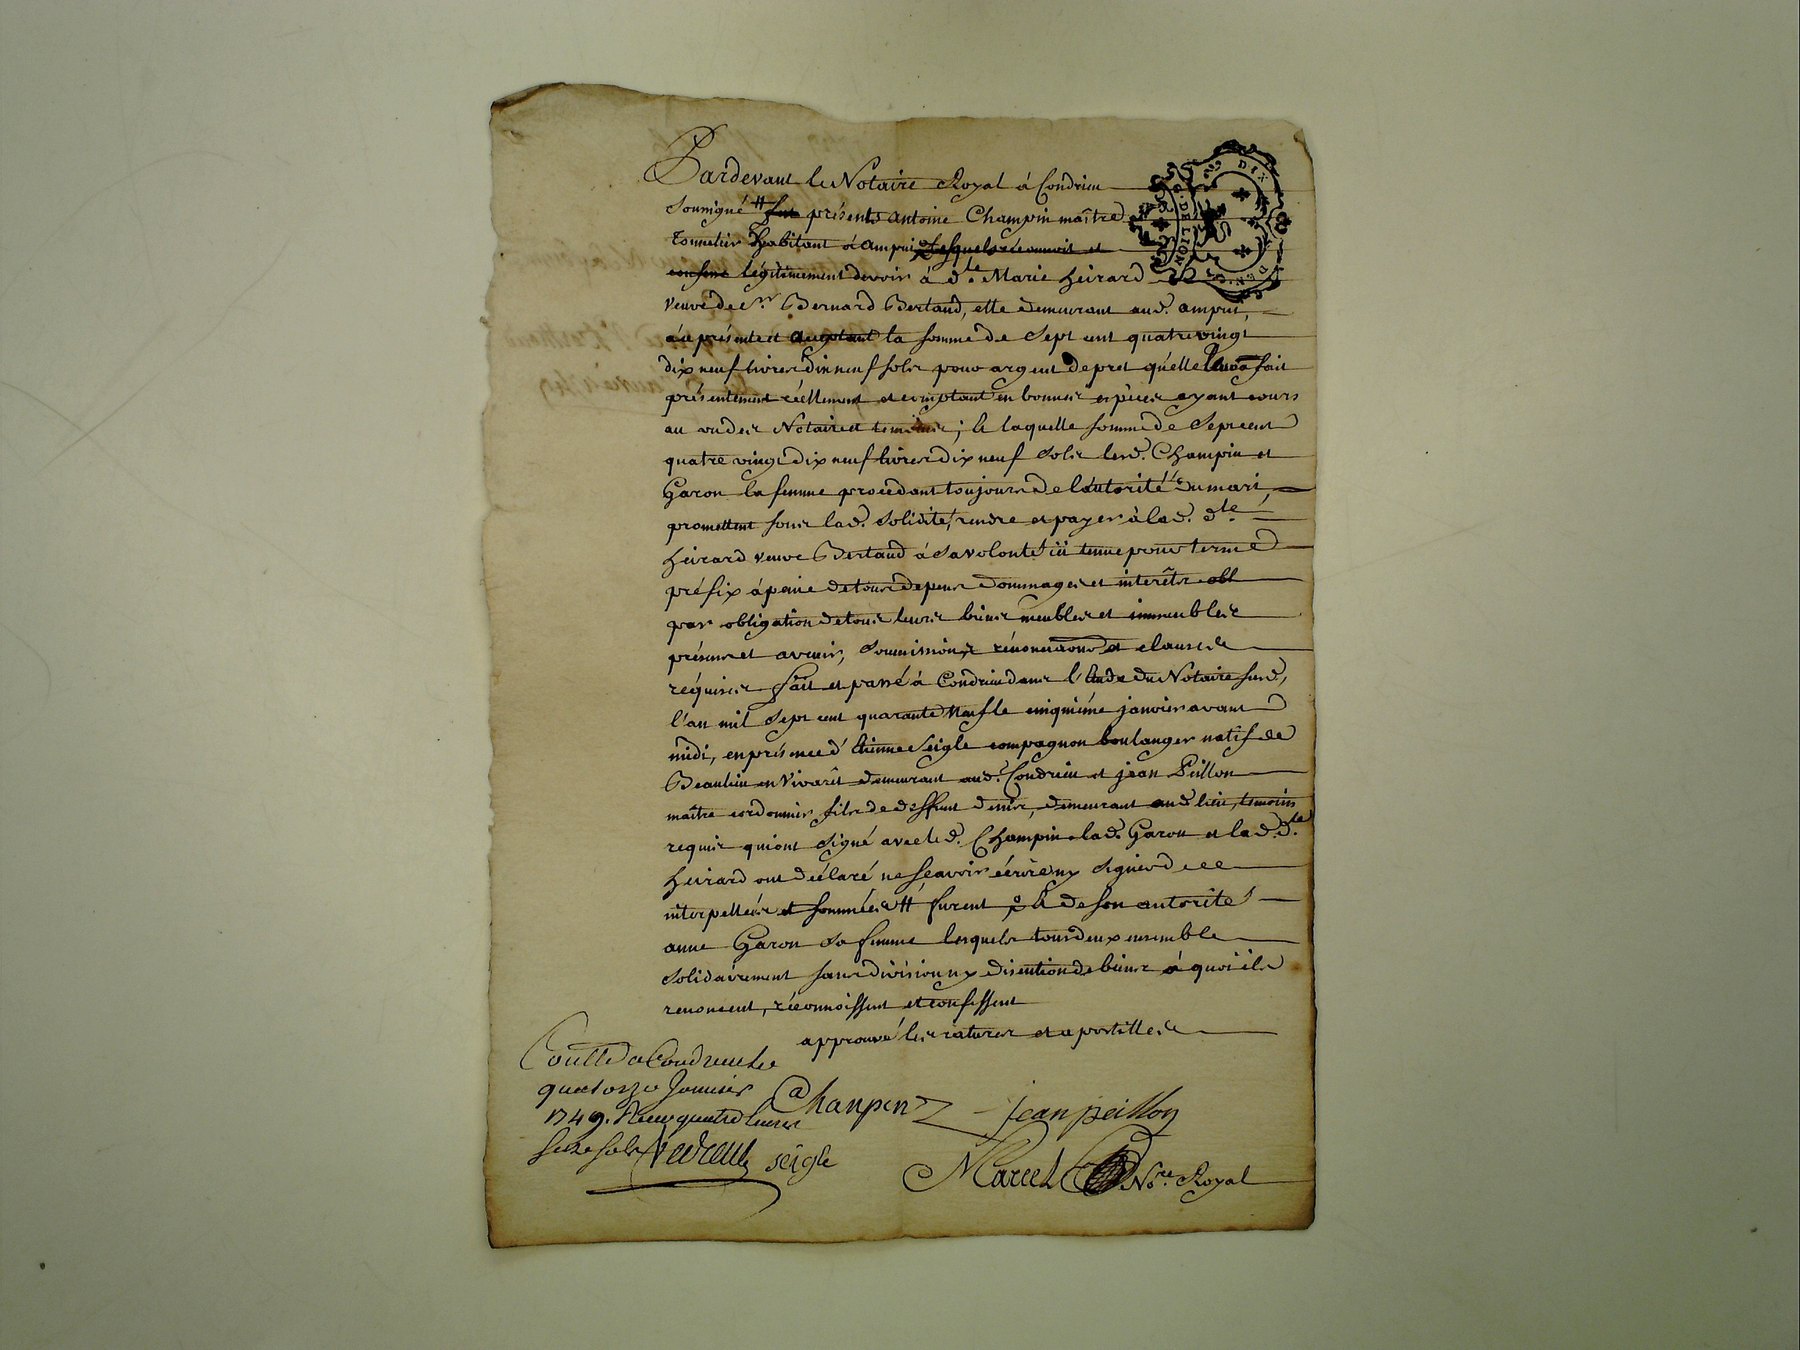 Pardevant le Notaire Royal à Condrieu
Soussigné # fut présents antoine Champin maître
Tonnelier habitant à ampuis lesquels reconnoit et
confesse légitimement devoir à d.le Marie heirard
veuve de s.r Bernard Bertaud, elle demeurant aud. ampuis,
ici présente et acceptant la somme de Sept cent quatre vingt
dix neuf livres dix neuf sols pour argent de pret qu'elle leur a fait
présentement réellement et comptant en bonnes espèces ayant cours
au vu des Notaire et temoins; la laquelle somme de Sept cent
quatre vingt dix neuf livres dix neuf sols lesd. Champin et
Garon sa femme procedant toujours de l'autorité du mari,
promettent sous lad. solidité, rendre et payer à lad. d.le
heirard veuve Bertaud à sa volonté ici tenue pour terme
préfix à peine de tous depens dommages et interêts obl
par obligation de tous leurs biens meubles et immeubles
présens et avenir, soumissions, rénonciations et clauses
requises fait et passé à Condrieu dans l'Etude du Notaire susd,
l'an mil Sept cent quarante neuf le cinquième janvier avant
midi, en présence d'Etienne Seigle compagnon boulanger natif de
Beaulieu en Vivarêt demeurant aud. Condrieu et jean Peillon
maître cordonnier fils de deffunt demeurant aud lieu, temoins
requis qui ont signé avec led. Champin lad. Garon et lad. d.le
heirard ont déclaré ne sçavoir écrire ny signer de ce
interpellées et sommées # furent & de son autorité
anne Garon sa femme lesquels tous deux ensemble
solidairement sans division ny discution de biens à quoi ils
renoncent, réconnoissent et confessent
approuvé les ratures et apostilles
Conllé a Condrieu le
quatorze Janvier
1749. Recu quatre livres
seize sols
Chanpin jean peillon
seigle
Marcel No.re Royal
DIX
DEN
LION